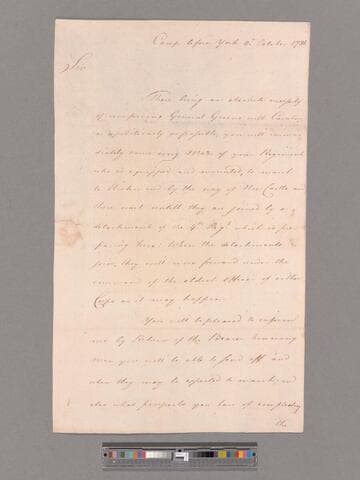 Camp before York 2d October 1781
Sir
There being an absolute necessity
of reinforcing General Greene with Cavalry
as expeditiously as possible, you will imme
diately cause every Man of your Regiment
who is equipped and mounted, to march
to and by the way of New Castle and
there wait untill they are joined by a
detachment of the 4th Regt which is pre
paring here: When the detachments
join, they will move forward under the
command of the eldest Officer of either
Corps as it may happen.
You will be pleased to inform
me by Return of the Bearer how many
Men you will be able to send off and
when they may be expected to march; and
also what prospects you have of compleating
the